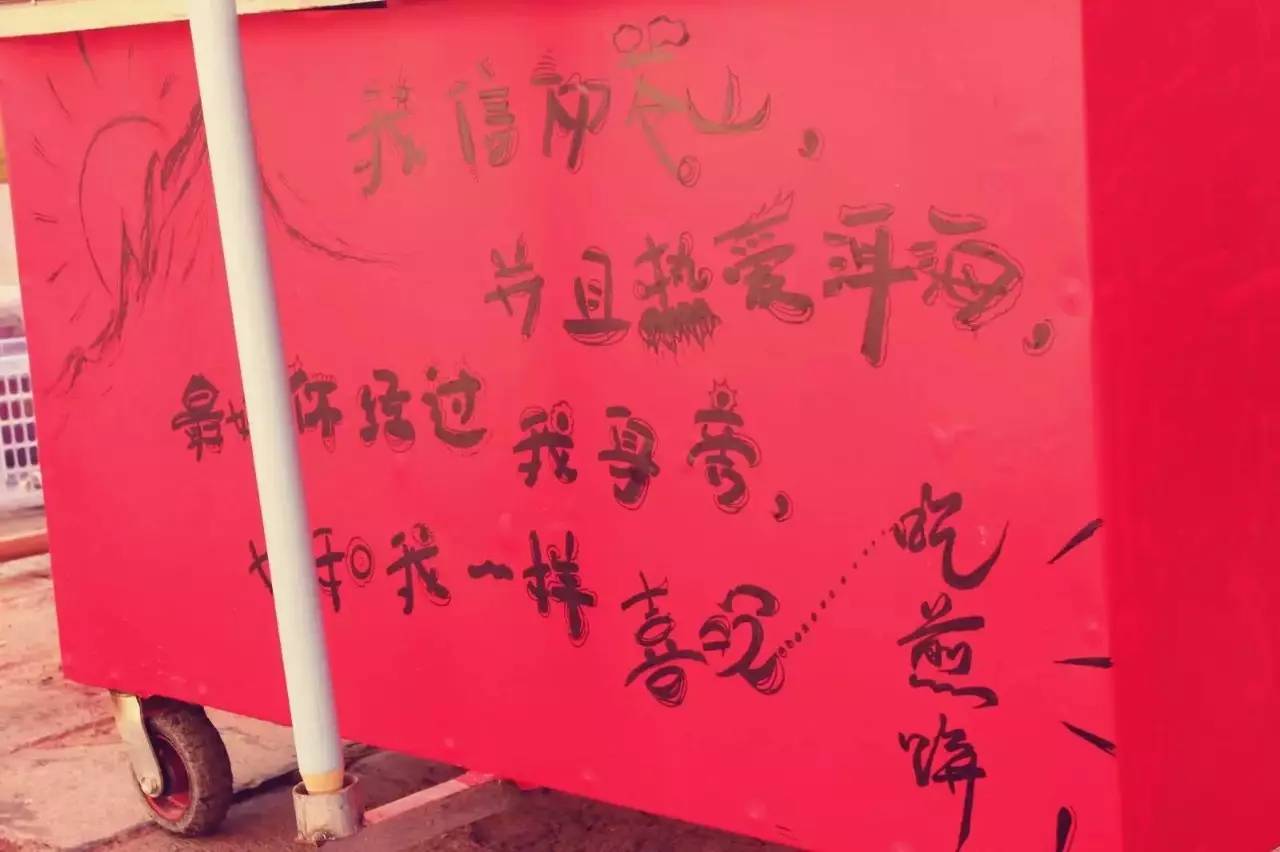 我信仰苍山，
并且热爱洱海，
最好你经过我身旁，
好和我一样喜欢
吃煎饼！